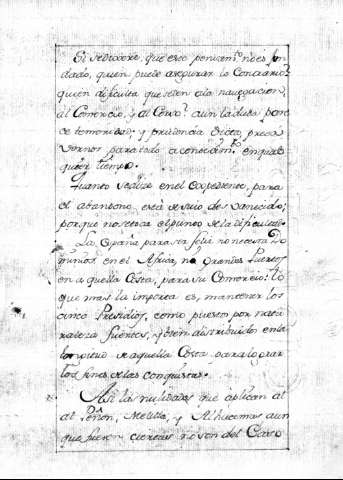 Si se dixere, que este pensam.to no es fun
dado, quien puede asegurar lo Contrario?
quien dificulta que se den a la navegacion,
al Comercio, y al Corso? aun la duda pone
de temoridad; y prudencia dicta preca
vernos para todo acontecim.to en qual
quier tiempo.
Quanto se dice en el Expediente, para
el abandono, está de suio desvanecido;
porque no tocan alguno de la dificultad.
La España para ser feliz no necesita Do
minios en el Africa, ni Grandes Puertos
en aquella Costa, para su Comercio: lo
que mas la importa es, mantener los
cinco Presidios, como puestos por natu
raleza fuertes, y bien distribuidos en la
longitud de aquella Costa para lograr
los fines de las conquistas.
Asi las nulidades que aplican al
al Peñon, Melilla, y Alhucemas aun
que fuesen ciertas no son del Caso